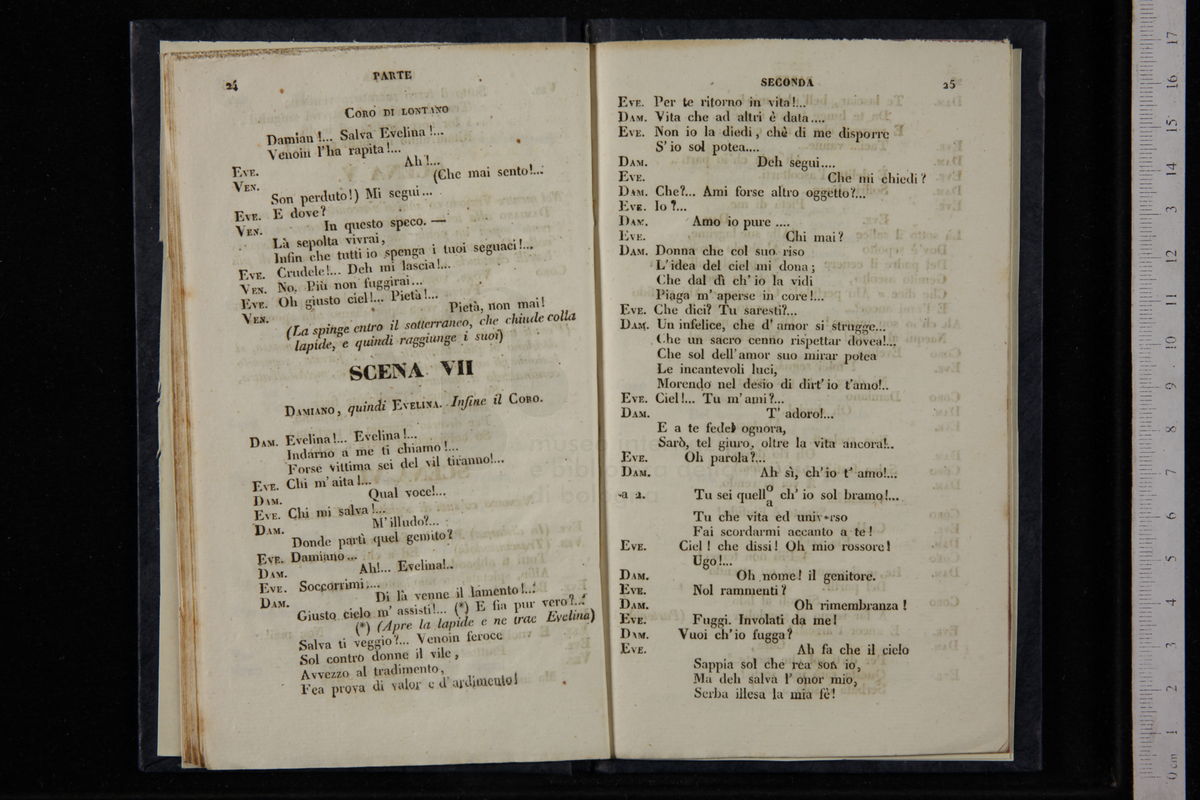 24
PARTE
CORO DI LONTANO
Damian!... Salva Evelina!...
Venoin l'ha rapita!...
EVE. Ah!...
VEN. (Che mai sento!...
Son perduto!) Mi segui...
EVE. E dove?
VEN. In questo speco. —
Là sepolta vivrai,
Infin che tutti io spenga i tuoi seguaci!...
EVE. Crudele!... Deh mi lascia!...
VEN. No. Più non fuggirai...
EVE. Oh giusto ciel!... Pietà!...
VEN. Pietà, non mai!
(La spinge entro il sotterraneo, che chiude colla
lapide, e quindi raggiunge i suoi)
SCENA VII
DAMIANO, quindi EVELINA. Infine il CORO.
DAM. Evelina!... Evelina!...
Indarno a me ti chiamo!...
Forse vittima sei del vil tiranno!...
EVE. Chi m'aita!...
DAM. Qual voce!...
EVE. Chi mi salva!...
DAM. M'illudo?...
Donde partì quel gemito?
EVE. Damiano...
DAM. Ah!... Evelina!..
EVE. Soccorrimi;...
DAM. Di là venne il lamento!...
Giusto cielo m' assisti!... (*) E fia pur vero?...
(*) (Apre la lapide e ne trae Evelina)
Salva ti veggio?... Venoin feroce
Sol contro donne il vile,
Avvezzo al tradimento,
Fea prova di valor e d'ardimento!
SECONDA
25
EVE. Per te ritorno in vita!...
DAM. Vita che ad altri è data....
EVE. Non io la diedi, chè di me disporre
S' io sol potea....
DAM. Deh segui....
EVE. Che mi chiedi?
DAM. Che?... Ami forse altro oggetto?...
EVE. Io?...
DAM. Amo io pure ....
EVE. Chi mai?
DAM. Donna che col suo riso
L'idea del ciel mi dona;
Che dal dì ch' io la vidi
Piaga m' aperse in core!...
EVE. Che dici? Tu saresti?...
DAM. Un infelice, che d' amor si strugge...
Che un sacro cenno rispettar dovea!...
Che sol dell'amor suo mirar potea
Le incantevoli luci,
Morendo nel desio di dirt' io t'amo!..
EVE. Ciel!... Tu m' ami?...
DAM. T' adoro!...
E a te fedel ognora,
Sarò, tel giuro, oltre la vita ancora!..
EVE. Oh parola?...
DAM. Ah sì, ch' io t' amo!...
a 2. Tu sei quell o/a ch' io sol bramo!...
Tu che vita ed universo
Fai scordarmi accanto a te!
EVE. Ciel! che dissi! Oh mio rossore!
Ugo!...
DAM. Oh nome! il genitore.
EVE. Nol rammenti?
DAM. Oh rimembranza!
EVE. Fuggi. Involati da me!
DAM. Vuoi ch' io fugga?
EVE. Ah fa che il cielo
Sappia sol che rea son io,
Ma deh salva l' onor mio,
Serba illesa la mia fè!